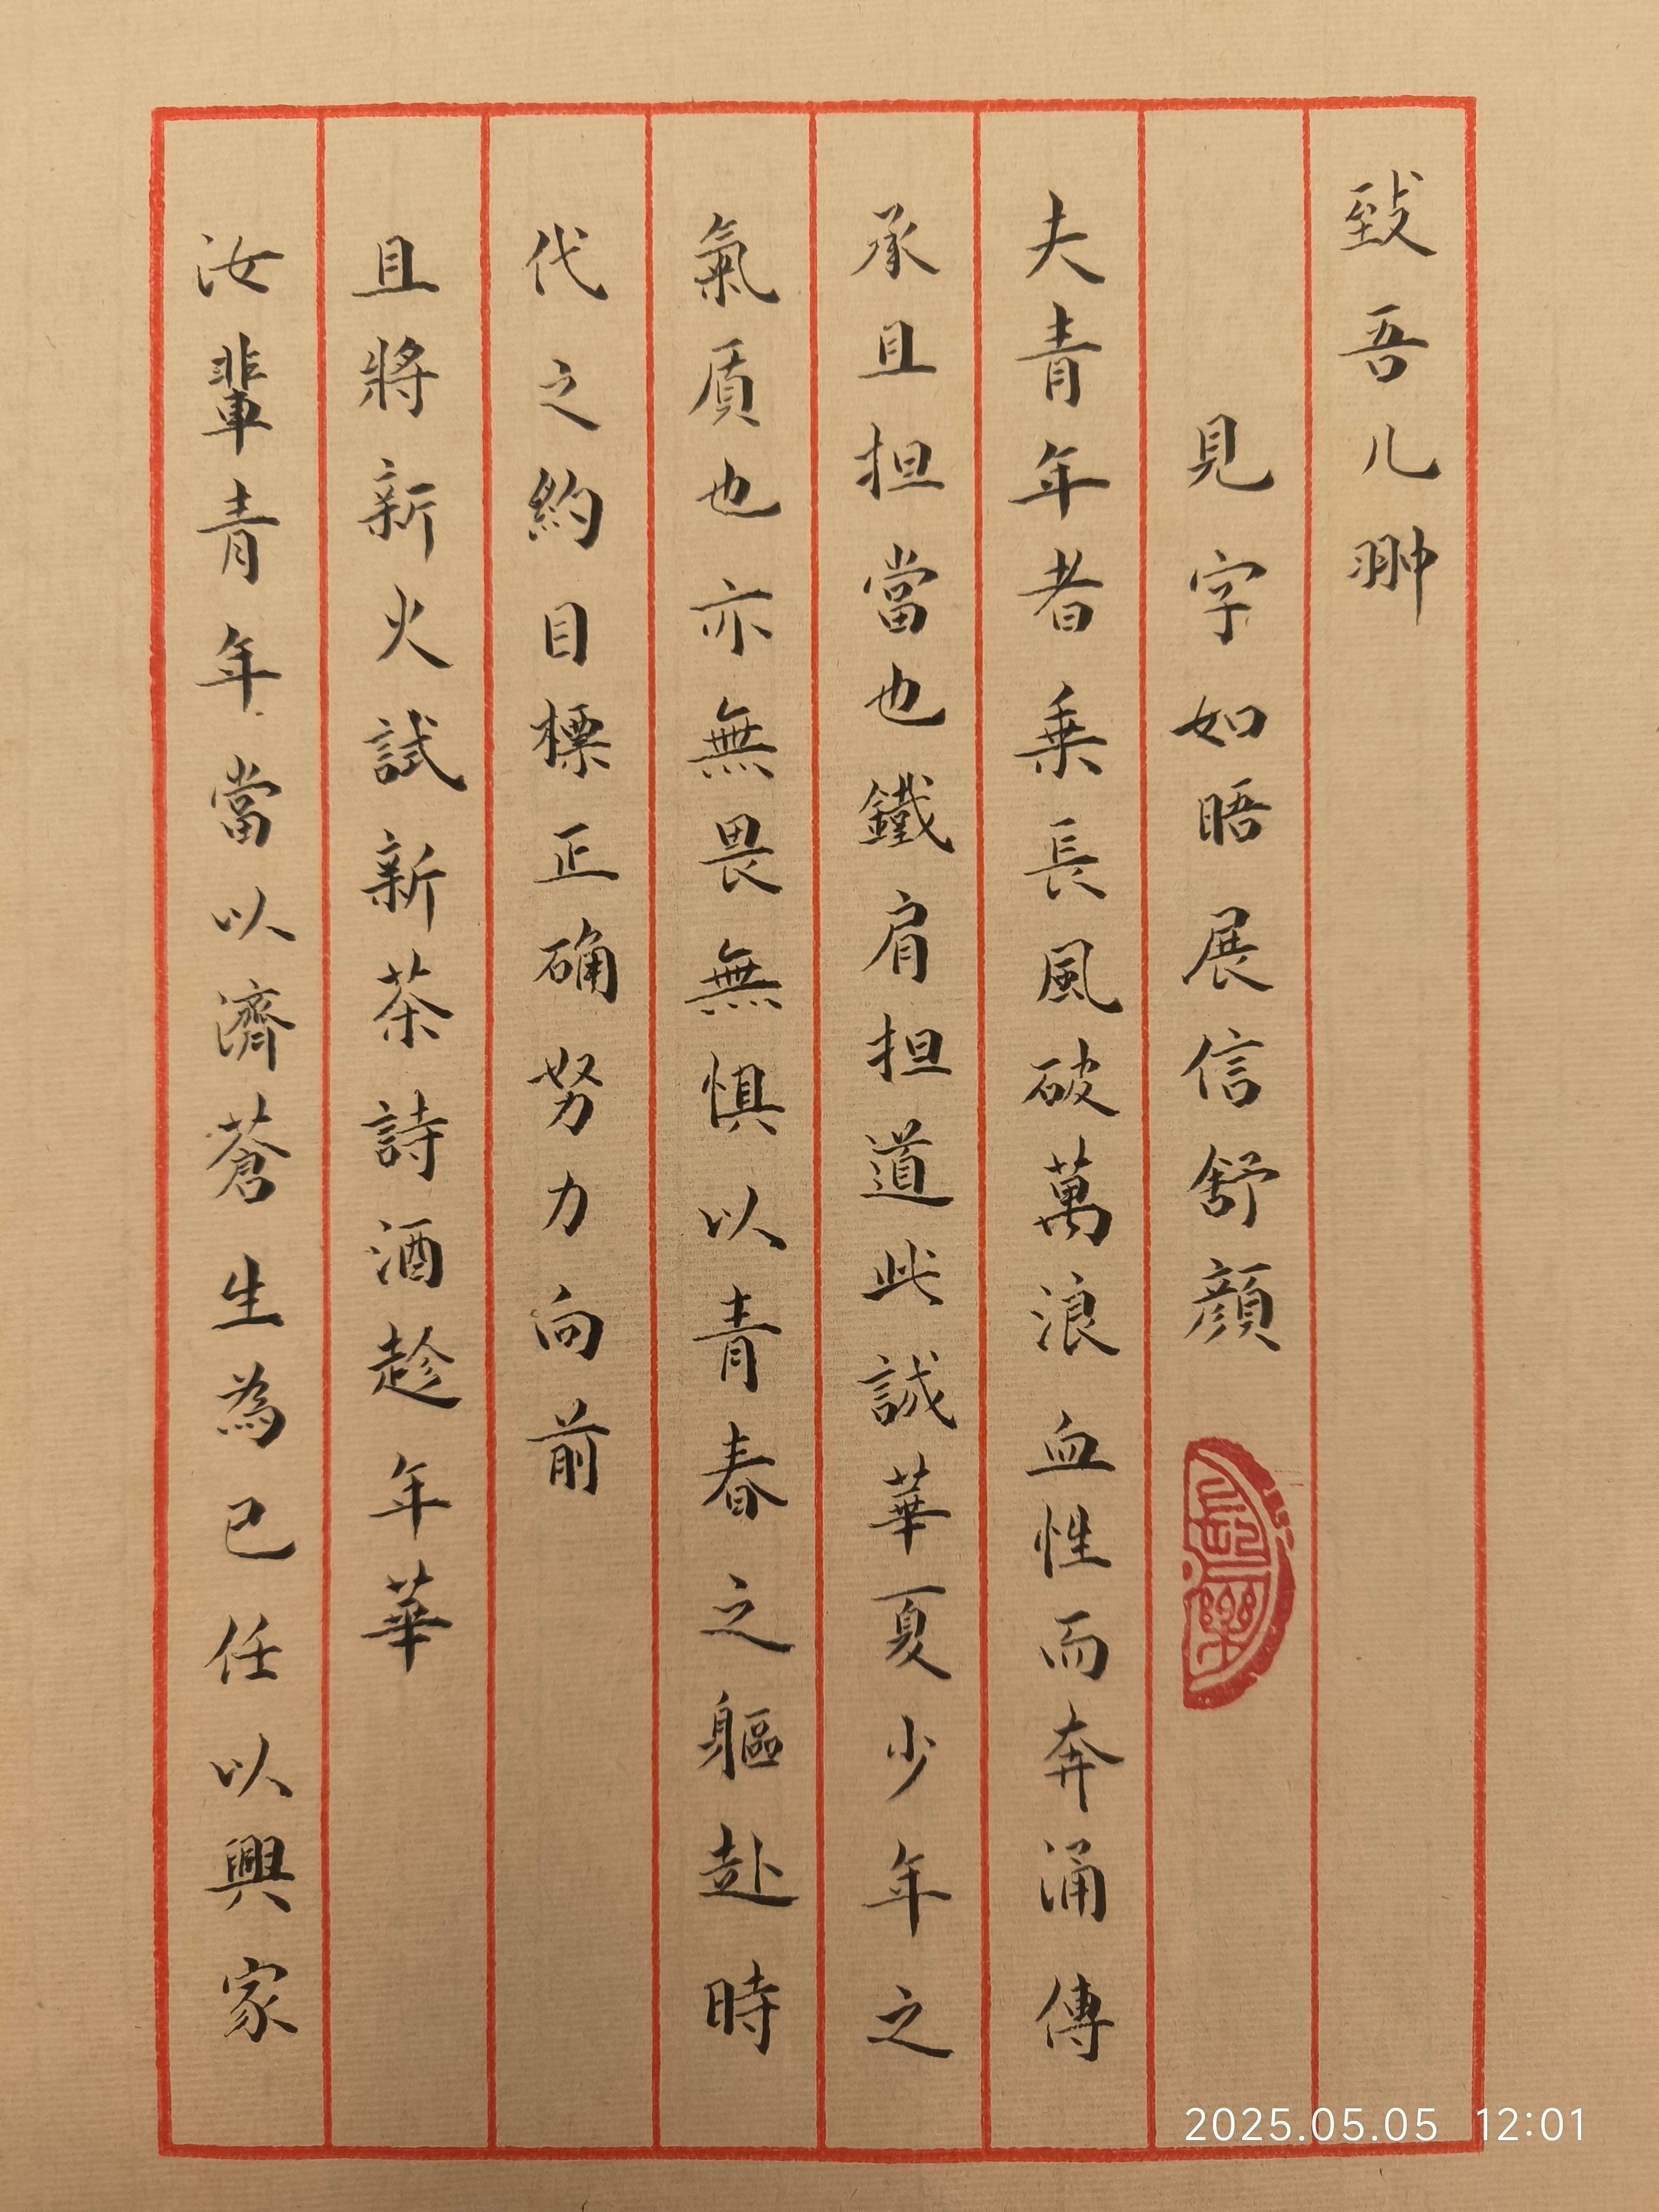 致吾儿翀
見字如晤展信舒顔
長樂
夫青年者乗長風破萬浪血性而奔涌傳
承且担當也鐵肩担道此誠華夏少年之
氣质也亦無畏無惧以青春之軀赴時
代之約目標正确努力向前
且將新火試新茶詩酒趁年華
汝輩青年當以濟蒼生為己任以興家
2025.05.05 12:01